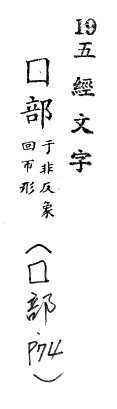 19五經文字
囗部
于非反象
回帀形
(囗部 P74)